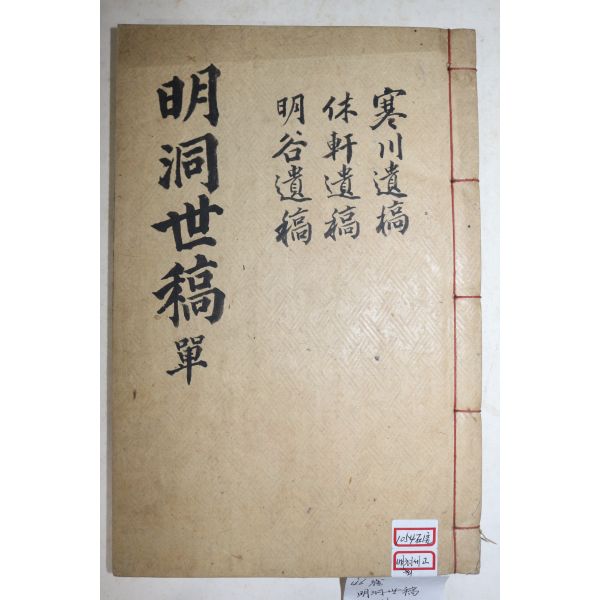 寒川遺槁
休軒遺稿
明谷遺稿
明洞世稿 單
명동세고
明洞世稿